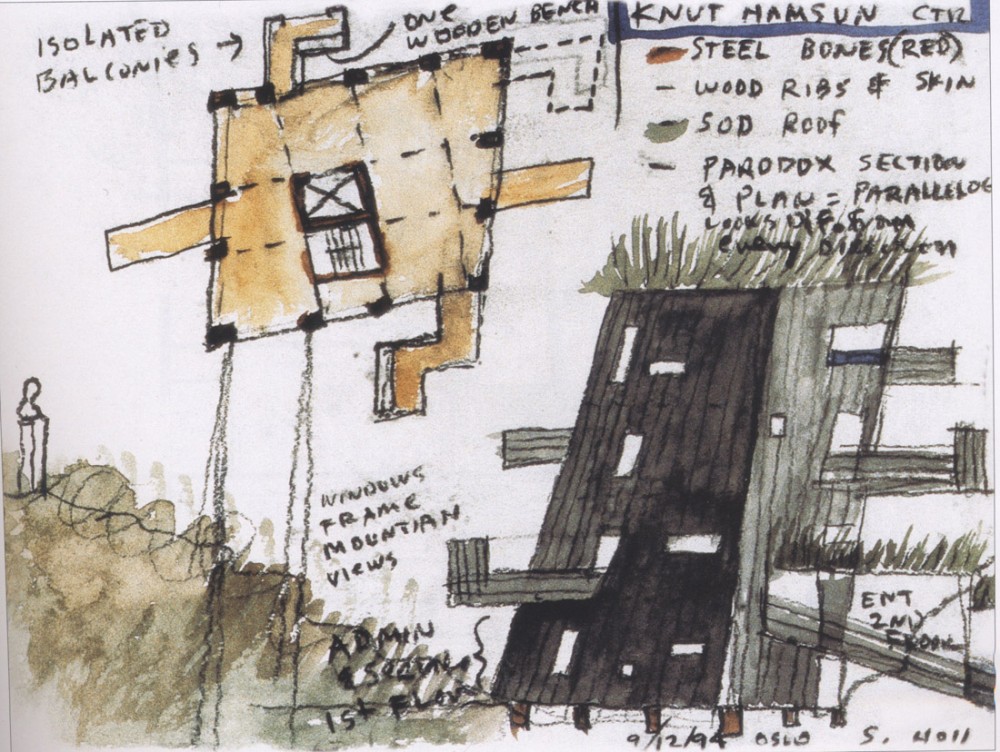 ISOLATED
BALCONIES →
ONE
WOODEN BENCH
KNUT HAMSUN CTR
STEEL BONES (RED)
– WOOD RIBS & SKIN
SOD ROOF
– PARODOX SECTION
& PLAN = PARALLELOG
LOOKS DIF. FROM
EVERY DIRECTION
WINDOWS
FRAME
MOUNTIAN
VIEWS
ADMIN
1st FLOOR
ENT
2ND
FLOOR
9/12/94 OSLO S. HOLL